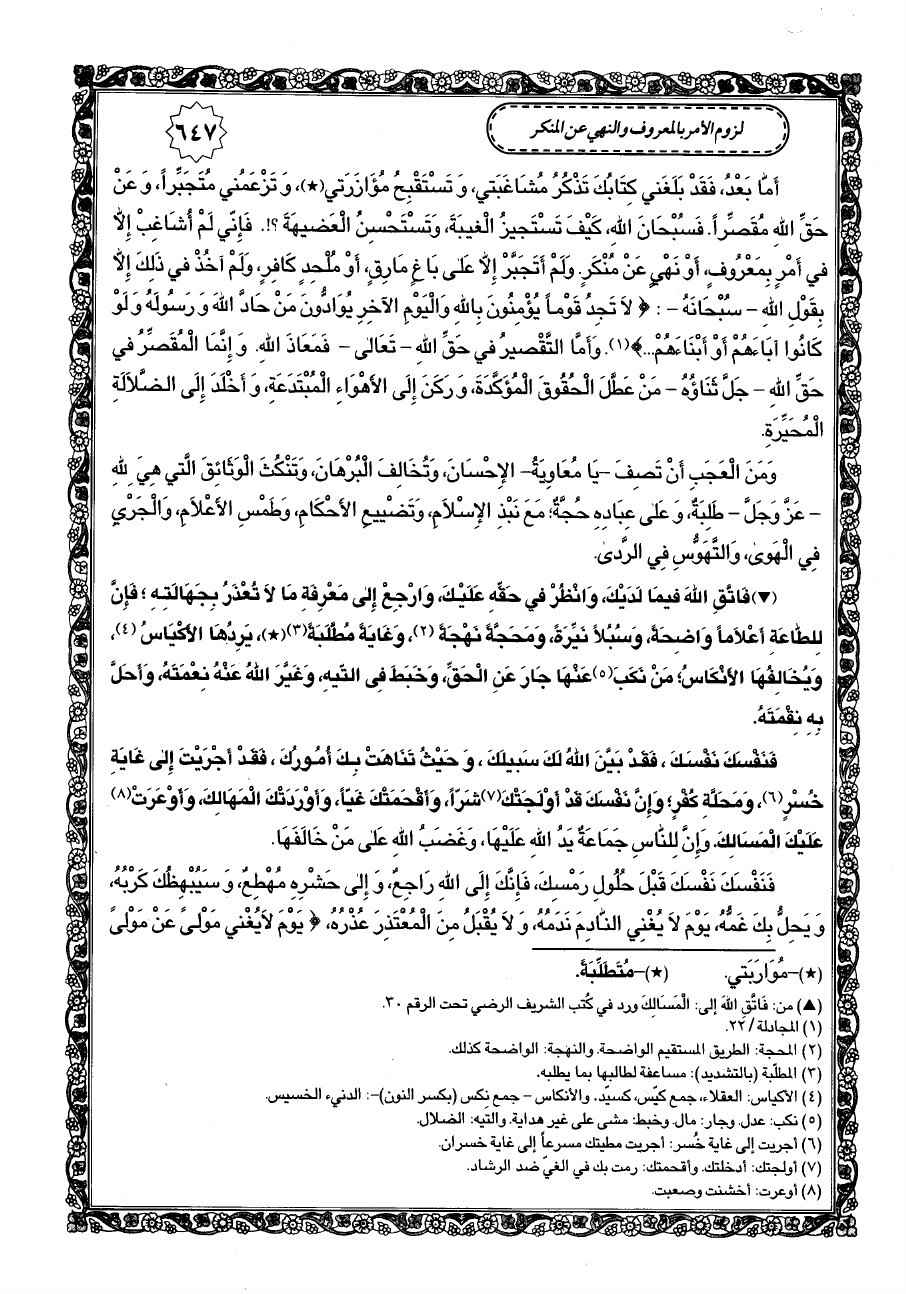 لزوم الأمر بالمعروف والنهي عن المنكر
٦٤٧
أَمَّا بَعْدُ، فَقَدْ بَلَغَني كِتَابُكَ تَذْكُرُ مُشَاغَبَتي، وَ تَسْتَقْبِحُ مُؤَازَرَتي(★)، وَ تَزْعَمُني مُتَجَبِّراً، وَ عَنْ
حَقِّ اللهِ مُقَصِّراً. فَسُبْحَانَ اللهِ، كَيْفَ تَسْتَجيزُ الْغيبَةَ، وَتَسْتَحْسِنُ الْعَضيهَةَ ؟!. فَإِنّي لَمْ أُشَاغِبْ إِلاَّ
في أَمْرٍ بِمَعْرُوفٍ، أَوْ نَهْيٍ عَنْ مُنْكَرٍ. وَلَمْ أَتَجَبَّرْ إِلاَّ عَلىٰ بَاغٍ مَارِقٍ، أَوْ مُلْحِدٍ كَافِرٍ، وَلَمْ آخُذْ في ذَلِكَ إِلاَّ
بِقَوْلِ اللهِ – سُبْحَانَهُ – : ﴿ لاَ تَجِدُ قَوْماً يُؤْمِنُونَ بِاللهِ وَالْيَوْمِ الآخِرِ يُوَادُّونَ مَنْ حَادَّ اللهَ وَ رَسُولَهُ وَ لَوْ
كَانُوا آبَاءَهُمْ أَوْ أَبْنَاءَهُمْ...﴾(١). وَأَمَّا التَّقْصيرُ في حَقِّ اللهِ – تَعَالى – فَمَعَاذَ اللهِ. وَ إِنَّمَا الْمُقَصِّرُ في
حَقِّ اللهِ – جَلَّ ثَنَاؤُهُ – مَنْ عَطَّلَ الْحُقُوقَ الْمُؤَكَّدَةَ، وَ رَكَنَ إِلَى الأَهْوَاءِ الْمُبْتَدَعَةِ، وَ أَخْلَدَ إِلَى الضَّلاَلَةِ
الْمُحَيِّرَةِ.
وَمِنَ الْعَجَبِ أَنْ تَصِفَ –يَا مُعَاوِيَةُ– الإِحْسَانَ، وَتُخَالِفَ الْبُرْهَانَ، وَتَنْكُثَ الْوَثَائِقَ الَّتي هِيَ لِلهِ
– عَزَّ وَجَلَّ – طَلِبَةٌ، وَ عَلىٰ عِبَادِهِ حُجَّةٌ؛ مَعَ نَبْذِ الإِسْلاَمِ، وَتَضْييعِ الأَحْكَامِ، وَطَمْسِ الأَعْلاَمِ، وَالْجَرْيِ
فِي الْهَوىٰ، وَالتَّهَوُّسِ فِي الرَّدىٰ.
(▼) فَاتَّقِ اللهَ فيمَا لَدَيْكَ، وَانْظُرْ في حَقِّهِ عَلَيْكَ، وَارْجِعْ إِلىٰ مَعْرِفَةِ مَا لاَ تُعْذَرُ بِجَهَالَتِهِ ؛ فَإِنَّ
لِلطَّاعَةِ أَعْلاَماً وَاضِحَةً، وَسُبُلاً نَيِّرَةً، وَمَحَجَّةً نَهْجَةً (٢)، وَغَايَةً مُطَّلِبَةً(٣)(★)، يَرِدُهَا الأَكْيَاسُ (٤)،
وَيُخَالِفُهَا الأَنْكَاسُ؛ مَنْ نَكَبَ(٥)عَنْهَا جَارَ عَنِ الْحَقِّ، وَخَبَطَ فِي التّيهِ، وَغَيَّرَ اللهُ عَنْهُ نِعْمَتَهُ، وَأَحَلَّ
بِهِ نِقْمَتَهُ.
فَنَفْسَكَ نَفْسَكَ ، فَقَدْ بَيَّنَ اللهُ لَكَ سَبيلَكَ ، وَ حَيْثُ تَنَاهَتْ بِكَ أُمُورُكَ ، فَقَدْ أَجْرَيْتَ إِلىٰ غَايَةِ
خُسْرٍ(٦)، وَمَحَلَّةِ كُفْرٍ؛ وَإِنَّ نَفْسَكَ قَدْ أَوْلَجَتْكَ(٧)شَرّاً، وَأَقْحَمَتْكَ غَيّاً، وَأَوْرَدَتْكَ الْمَهَالِكَ، وَأَوْعَرَتْ(٨)
عَلَيْكَ الْمَسَالِكَ. وَإِنَّ لِلنَّاسِ جَمَاعَةً يَدُ اللهِ عَلَيْهَا، وَغَضَبُ اللهِ عَلىٰ مَنْ خَالَفَهَا.
فَنَفْسَكَ نَفْسَكَ قَبْلَ حُلُولِ رَمْسِكَ، فَإِنَّكَ إِلَى اللهِ رَاجِعٌ، وَ إِلىٰ حَشْرِهِ مُهْطِعٌ، وَ سَيُبْهِظُكَ كَرْبُهُ،
وَ يَحِلُّ بِكَ غَمُّهُ، يَوْمَ لاَ يُغْنِي النَّادِمَ نَدَمُهُ، وَ لاَ يُقْبَلُ مِنَ الْمُعْتَذِرِ عُذْرُهُ، ﴿ يَوْمَ لاَيُغْني مَوْلىً عَنْ مَوْلىً
(★)–مُوَارَبَتي. (★)–مُتَطَلَّبَةً.
(▲) من: فَاتَّقِ اللهَ إلى: الْمَسَالِكَ ورد في كُتب الشريف الرضي تحت الرقم ٣٠.
(١) المجادلة / ٢٢.
(٢) المحجة: الطريق المستقيم الواضحة. والنهجة: الواضحة كذلك.
(٣) المطلّبة (بالتشديد): مساعفة لطالبها بما يطلبه.
(٤) الأكياس: العقلاء، جمع كيّس، كسيّد. والأنكاس – جمع نِكس (بكسر النون)–: الدنيء الخسيس.
(٥) نكب: عدل. وجار: مال. وخبط: مشى على غير هداية. والتيه: الضلال.
(٦) أجريت إلى غاية خُسر: أجريت مطيتك مسرعاً إلى غاية خسران.
(٧) أولجتك: أدخلتك. وأقحمتك: رمت بك في الغيّ ضد الرشاد.
(٨) أوعرت: أخشنت وصعبت.